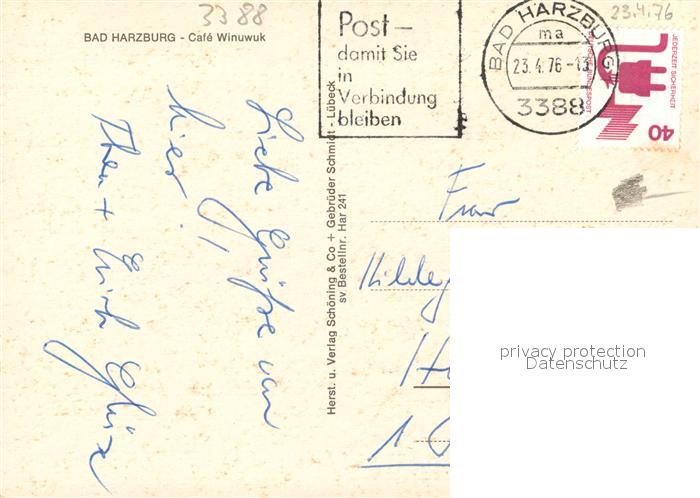 3388
23.4.76
BAD HARZBURG - Café Winuwuk
Post-
damit Sie
in
Verbindung
bleiben
BAD HARZBURG
ma
23.4.76-13
3388
JEDERZEIT SICHERHEIT
BUNDESPOST
40
Liebe Grüße von
hier,
Erich
Herst. u. Verlag Schöning & Co + Gebrüder Schmidt - Lübeck
sv Bestellnr. Har 241
Frau
privacy protection
Datenschutz
1